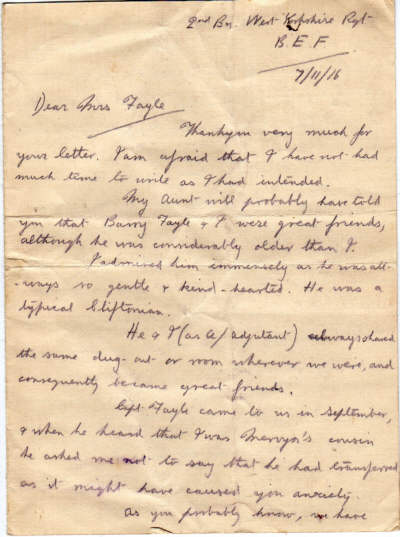 2nd Bn. West Yorkshire Rgt
B.E.F
7/11/16
Dear Mrs Fayle
Thankyou very much for
your letter. I am afraid that I have not had
much time to write as I had intended.
My Aunt will probably have told
you that Barry Fayle & I were great friends,
although he was considerably older than I.
I admired him immensely as he was all-
-ways so gentle & kind-hearted. He was a
typical Cliftonian.
He & I (as a/adjutant) always shared
the same dug-out or room wherever we were, and
consequently became great friends.
Capt. Fayle came to us in September,
& when he heard that I was Mervyn's cousin
he asked me not to say that he had transferred
as it might have caused you anxiety.
As you probably know, we have